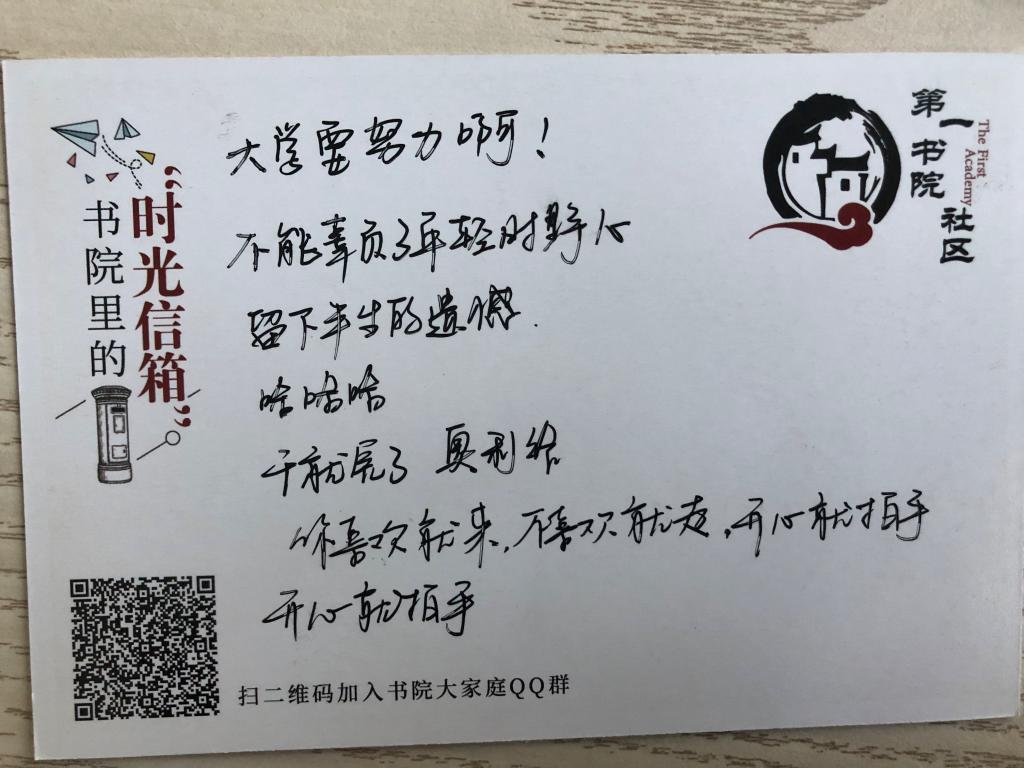 大学要努力啊！
不能辜负了年轻时野心
留下半生的遗憾.
哈哈哈
干就完了 奥利给
你喜欢就来,不喜欢就走,开心就拍手
开心就拍手
书院里的
“时光信箱”
第一书院
社区
The First
Academy
扫二维码加入书院大家庭QQ群